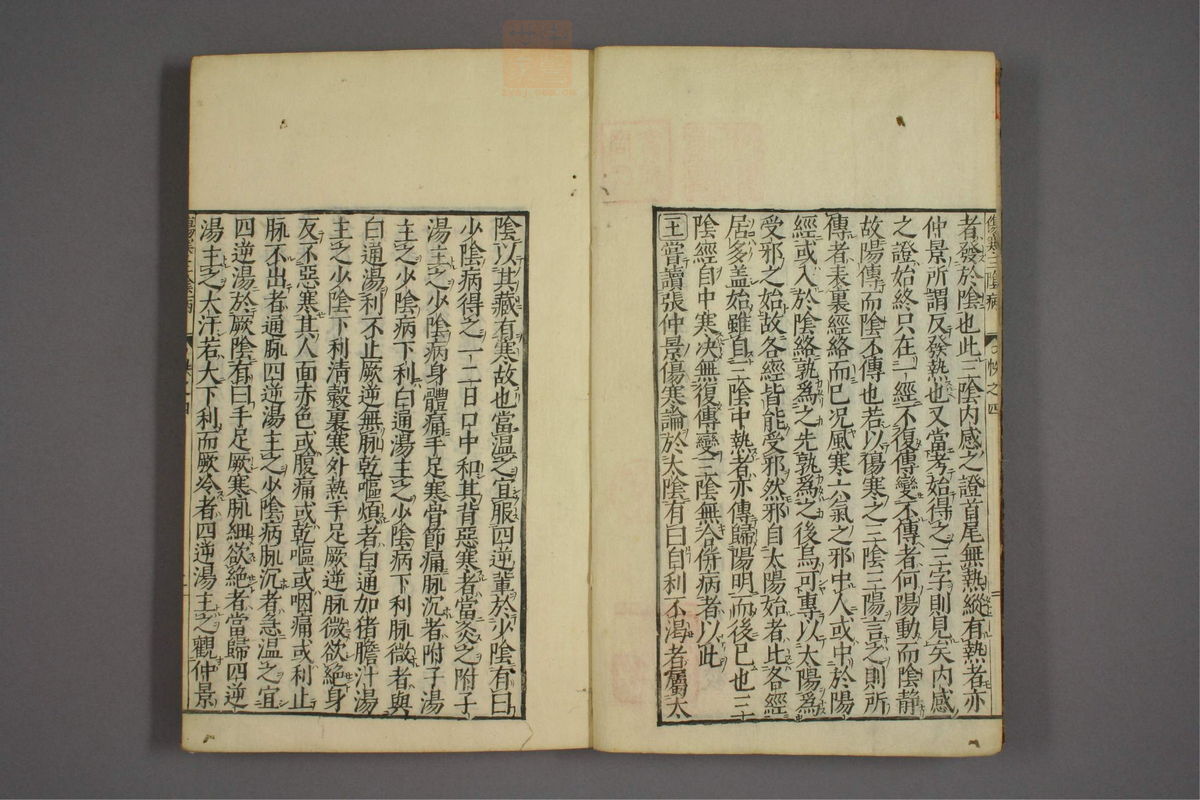 者發於陰也此三陰內感之證首尾無熱縱有熱者亦
仲景所謂反發熱也又當考始得之三字則見矣內感
之證始終只在一經不復傳變不傳者何陽動而陰靜
故陽傳而陰不傳也若以傷寒之三陰三陽言之則所
傳者表裏經絡而已況風寒六氣之邪中人或中於陽
經或入於陰絡孰爲之先孰爲之後烏可專以太陽爲
受邪之始故各經皆能受邪然邪自太陽始者此各經
居多盖始雖自三陰中熱者亦傳歸陽明而後已也三
陰經自中寒决無復傳變三陰無合併病者以此
二十嘗讀張仲景傷寒論於太陰有曰自利不渴者屬太
傷寒三陰病
帙之四
陰以其藏有寒故也當溫之宜服四逆輩於少陰有曰
少陰病得之一二日口中和其背惡寒者當灸之附子
湯主之少陰病身體痛手足寒骨節痛脉沉者附子湯
主之少陰病下利白通湯主之少陰病下利脉微者與
白通湯利不止厥逆無脉乾嘔煩者白通加猪膽汁湯
主之少陰下利清穀裏寒外熱手足厥逆脉微欲絕身
反不惡寒其人面赤色或腹痛或乾嘔或咽痛或利止
脉不出者通脉四逆湯主之少陰病脉沉者急溫之宜
四逆湯於厥陰有曰手足厥寒脉細欲絕者當歸四逆
湯主之大汗若大下利而厥冷者四逆湯主之觀仲景